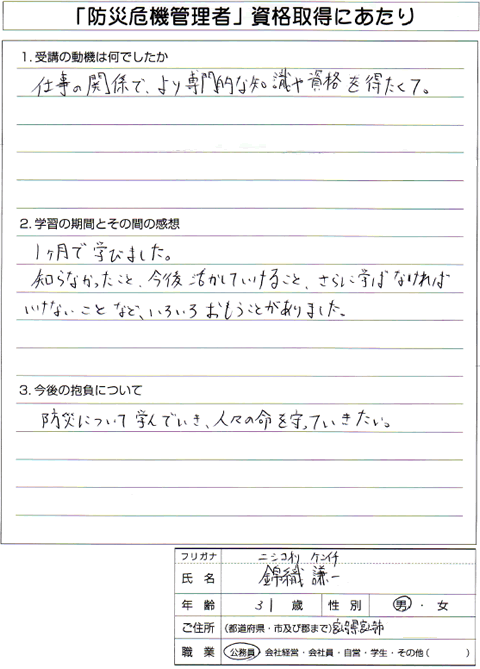 「防災危機管理者」資格取得にあたり
1.受講の動機は何でしたか
仕事の関係で、より専門的な知識や資格を得たくて。
2.学習の期間とその間の感想
1ヶ月で学びました。
知らなかったこと、今後活かしていけること、さらに学ばなければ
いけないことなど、いろいろおもうことがありました。
3.今後の抱負について
防災について学んでいき、人々の命を守っていきたい。
フリガナ ニシコオリ ケンイチ
氏名 錦織 謙一
年齢 31歳 性別 男・女
ご住所 (都道府県・市及び郡まで)
職業 公務員・会社経営・会社員・自営・学生・その他( )